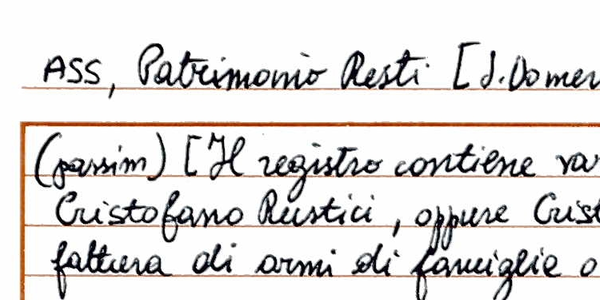 ASS, Patrimonio Resti [S. Domen
(passim) [Il registro contiene va
Cristofano Rustici, oppure Crist
fattura di armi di famiglie o